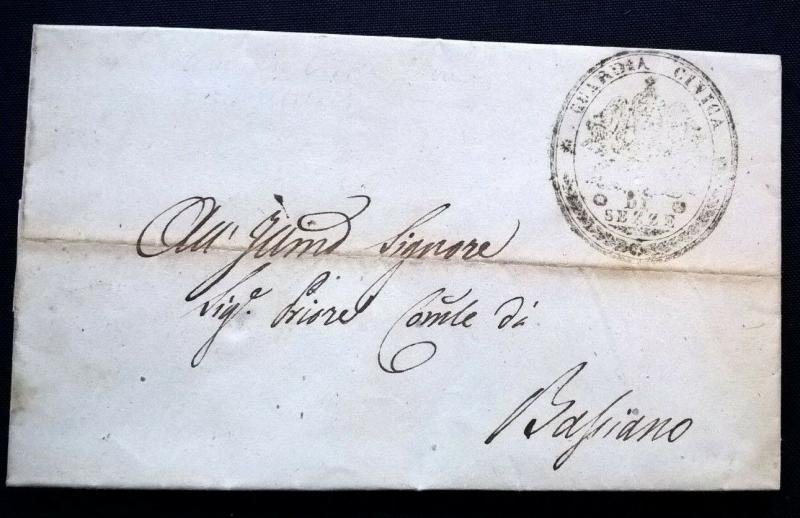 GUARDIA CIVICA
DI
SEZZE
All' Illmo Signore
Sigr. Priore Comle di
Bassiano